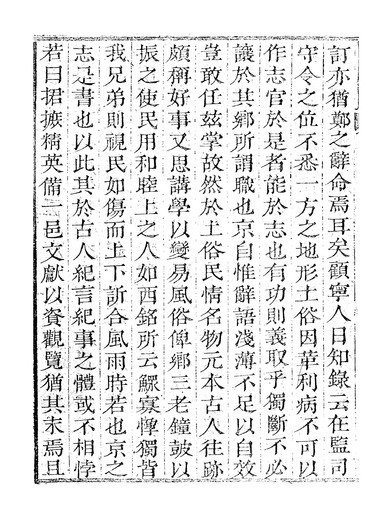 訂亦猶鄭之辭命焉耳矣顧寧人日知錄云在監司
守令之位不悉一方之地形土俗因革利病不可以
作志官於是者能於志也有功則義取乎獨斷不必
讓於其鄉所謂職也京自惟辭語淺薄不足以自效
豈敢任茲掌故然於土俗民情名物元本古人往跡
頗稱好事又思講學以變易風俗俾鄉三老鐘鼓以
振之使民用和睦上之人如西銘所云鰥寡惸獨皆
我兄弟則視民如傷而上下訢合風雨時若也京之
志是書也以此其於古人紀言紀事之體或不相悖
若曰捃摭精英備一邑文獻以資觀覽猶其末焉且